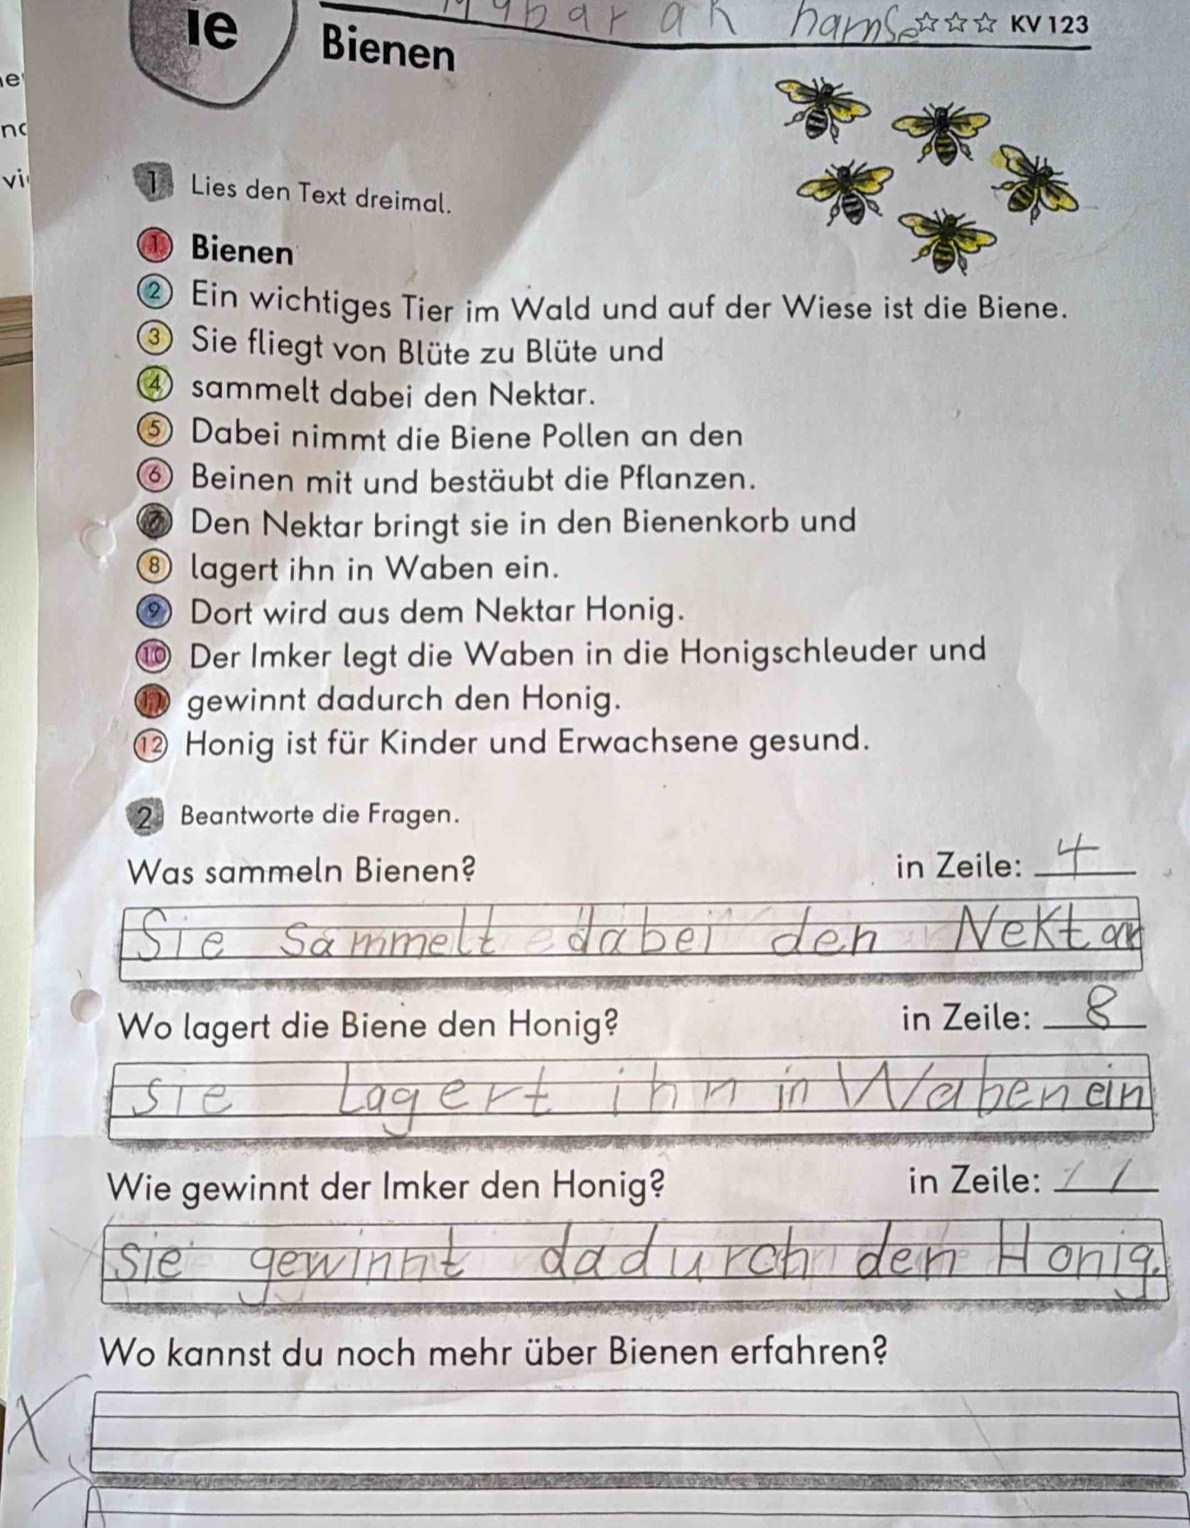 ie
Mubarak hamse KV 123
Bienen
1 Lies den Text dreimal.
1 Bienen
2 Ein wichtiges Tier im Wald und auf der Wiese ist die Biene.
3 Sie fliegt von Blüte zu Blüte und
4 sammelt dabei den Nektar.
5 Dabei nimmt die Biene Pollen an den
6 Beinen mit und bestäubt die Pflanzen.
7 Den Nektar bringt sie in den Bienenkorb und
8 lagert ihn in Waben ein.
9 Dort wird aus dem Nektar Honig.
10 Der Imker legt die Waben in die Honigschleuder und
11 gewinnt dadurch den Honig.
12 Honig ist für Kinder und Erwachsene gesund.
2 Beantworte die Fragen.
Was sammeln Bienen? in Zeile: 4
Sie sammelt dabei den Nektar
Wo lagert die Biene den Honig? in Zeile: 8
sie lagert ihn in Waben ein
Wie gewinnt der Imker den Honig? in Zeile: 11
sie gewinnt dadurch den Honig.
Wo kannst du noch mehr über Bienen erfahren?